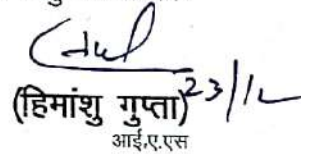 (हिमांशु गुप्ता) 23/12
आई.ए.एस